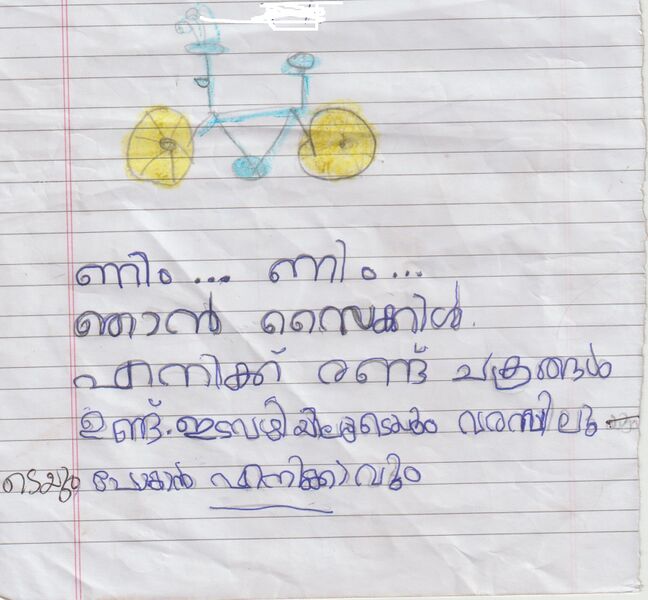 ണിം... ണിം...
ഞാൻ സൈക്കിൾ.
എനിക്ക് രണ്ട് ചക്രങ്ങൾ
ഉണ്ട്. ഇടവഴിയിലൂടെയും വരമ്പിലൂ
ടെയും പോകാൻ എനിക്കാവും